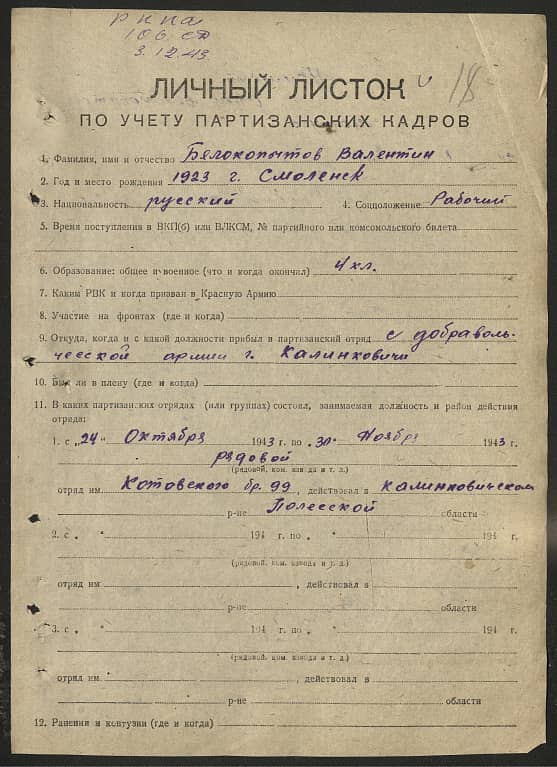 РККА
106 сд
3.12.43
18
ЛИЧНЫЙ ЛИСТОК
ПО УЧЕТУ ПАРТИЗАНСКИХ КАДРОВ
1. Фамилия, имя и отчество Белокопытов Валентин
2. Год и место рождения 1923 г. Смоленск
3. Национальность русский 4. Соцположение Рабочий
5. Время поступления в ВКП(б) или ВЛКСМ, № партийного или комсомольского билета
6. Образование: общее и военное (что и когда окончил) 4 кл.
7. Каким РВК и когда призван в Красную Армию
8. Участие на фронтах (где и когда)
9. Откуда, когда и с какой должности прибыл в партизанский отряд с добраволь-
ческой армии г. Калинковичи
10. Был ли в плену (где и когда)
11. В каких партизанских отрядах (или группах) состоял, занимаемая должность и район действия
отряда:
1. с „24" Октября 1943 г. по „30" Ноября 1943 г.
рядовой
(рядовой, ком. взвода и т. д.)
отряд им. Котовского бр. 99, действовал в Калинковичском
р-не Полесской области
2. с „ " 194 г. по „ " 194 г.
(рядовой, ком. взвода и т. д.)
отряд им , действовал в
р-не области
3. с „ " 194 г. по „ " 194 г.
(рядовой, ком. взвода и т. д.)
отряд им. , действовал в
р-не области
12. Ранения и контузии (где и когда)